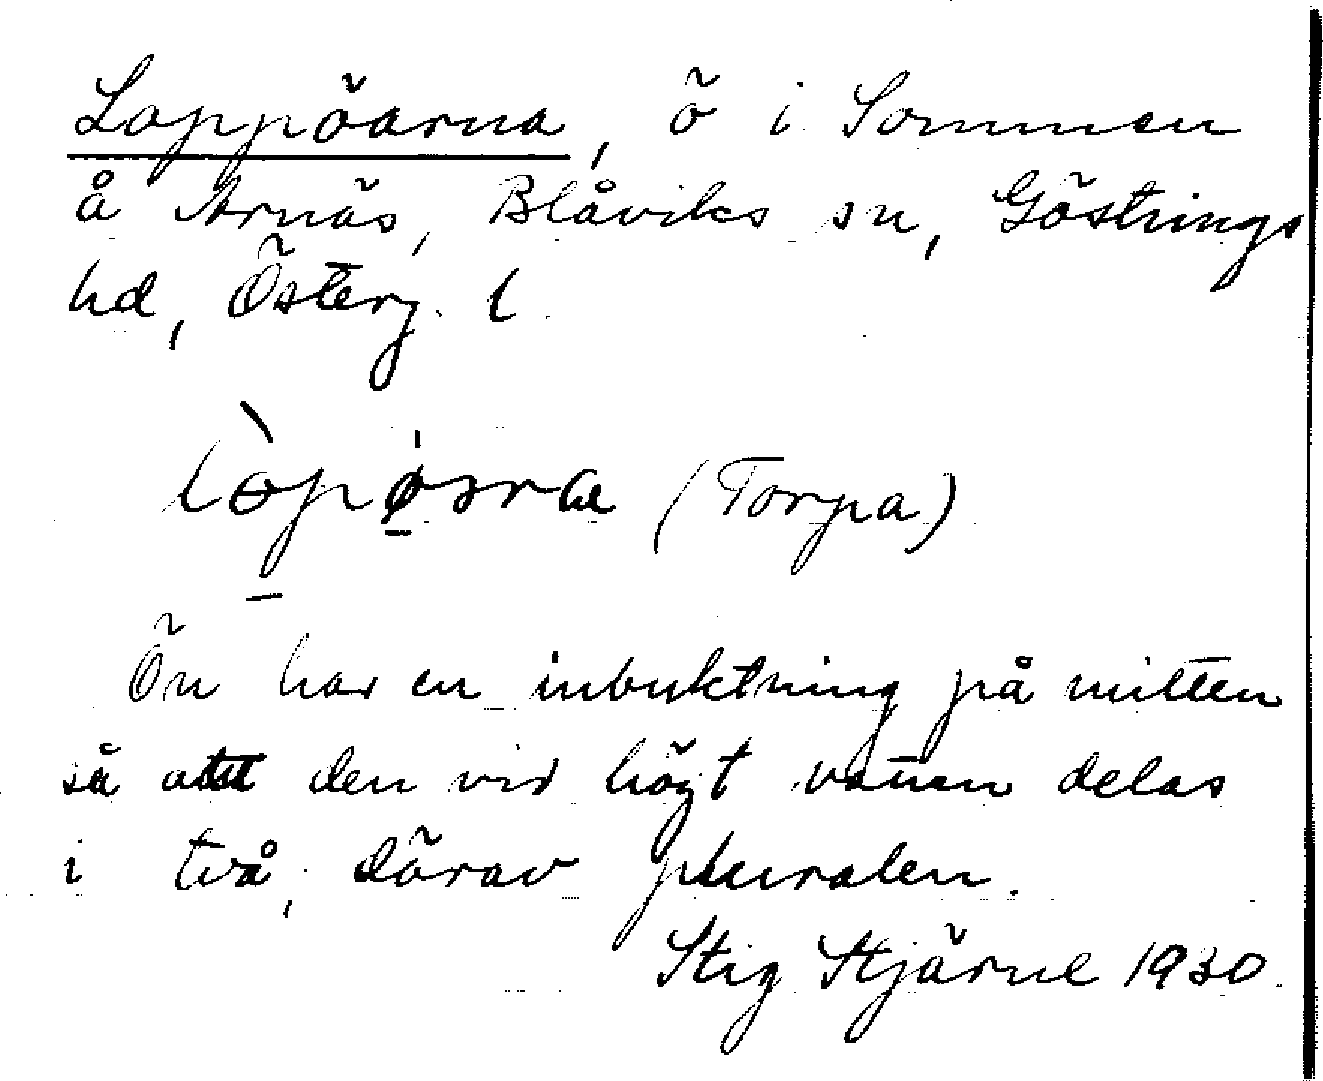 Loppöarna, ö i Sommen
å Arnäs, Blåviks sn, Göstrings
hd, Österg. l
lòpøsra (Torpa)
Ön har en inbuktning på mitten
så att den vid högt vatten delas
i två, därav pluralen.
Stig Stjärne 1930.